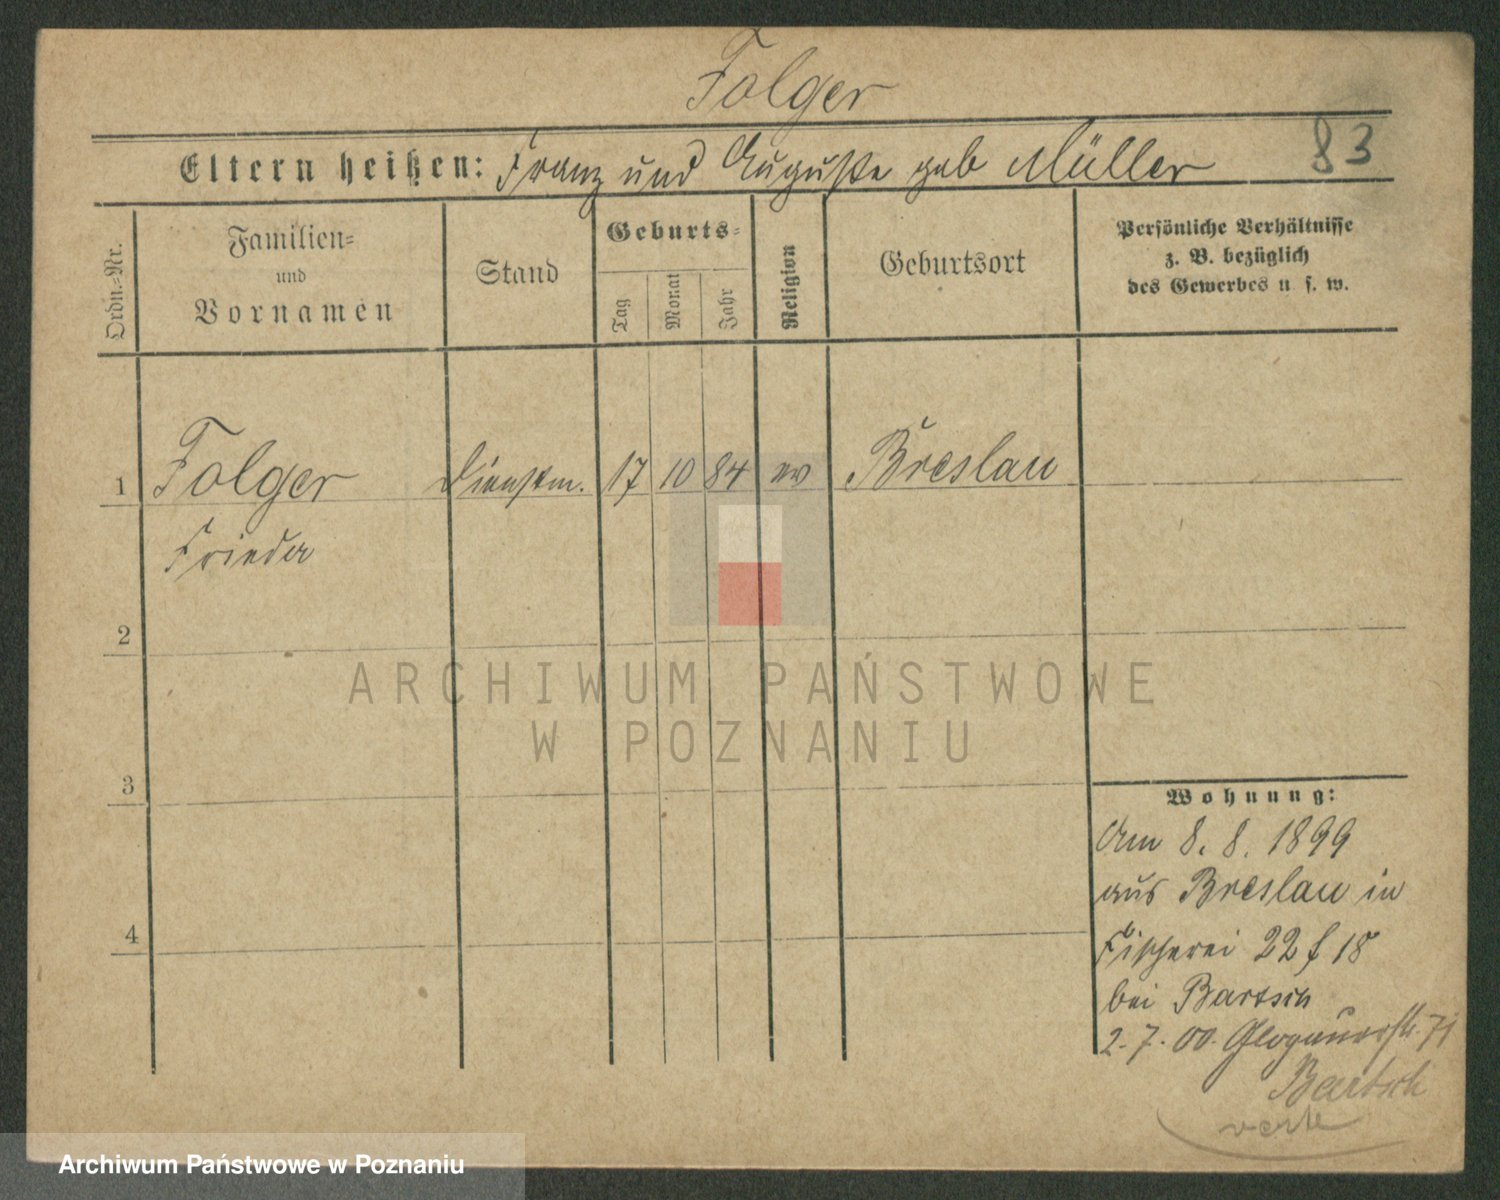 Folger
83
Eltern heißen: Franz und Auguste geb Müller
Ordn.-Nr.
Familien-
und
Vornamen
Stand
Geburts-
Tag
Monat
Jahr
Religion
Geburtsort
Persönliche Verhältnisse
z. B. bezüglich
des Gewerbes u s. w.
1 Folger Dienstm. 17 10 84 ev Breslau
Frieda
2
3
4
Wohnung:
Am 8. 8. 1899
aus Breslau in
Fischerei 22 f 18
bei Bartsch
2.7.00. Glogauerstr. 71
Bartsch
verte
ARCHIWUM PAŃSTWOWE
W POZNANIU
Archiwum Państwowe w Poznaniu